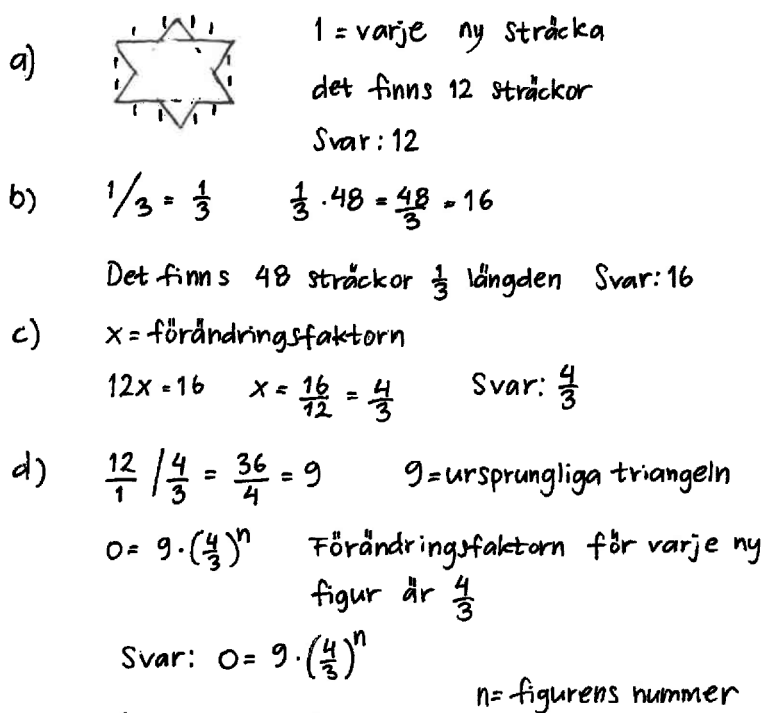 a) 1 = varje ny sträcka
det finns 12 sträckor
Svar: 12
b) 1/3 = 1/3 1/3 · 48 = 48/3 = 16
Det finns 48 sträckor 1/3 längden Svar: 16
c) x = förändringsfaktorn
12x = 16 x = 16/12 = 4/3 Svar: 4/3
d) 12/1 / 4/3 = 36/4 = 9 9 = ursprungliga triangeln
O = 9 · (4/3)^n Förändringsfaktorn för varje ny
figur är 4/3
Svar: O = 9 · (4/3)^n
n = figurens nummer